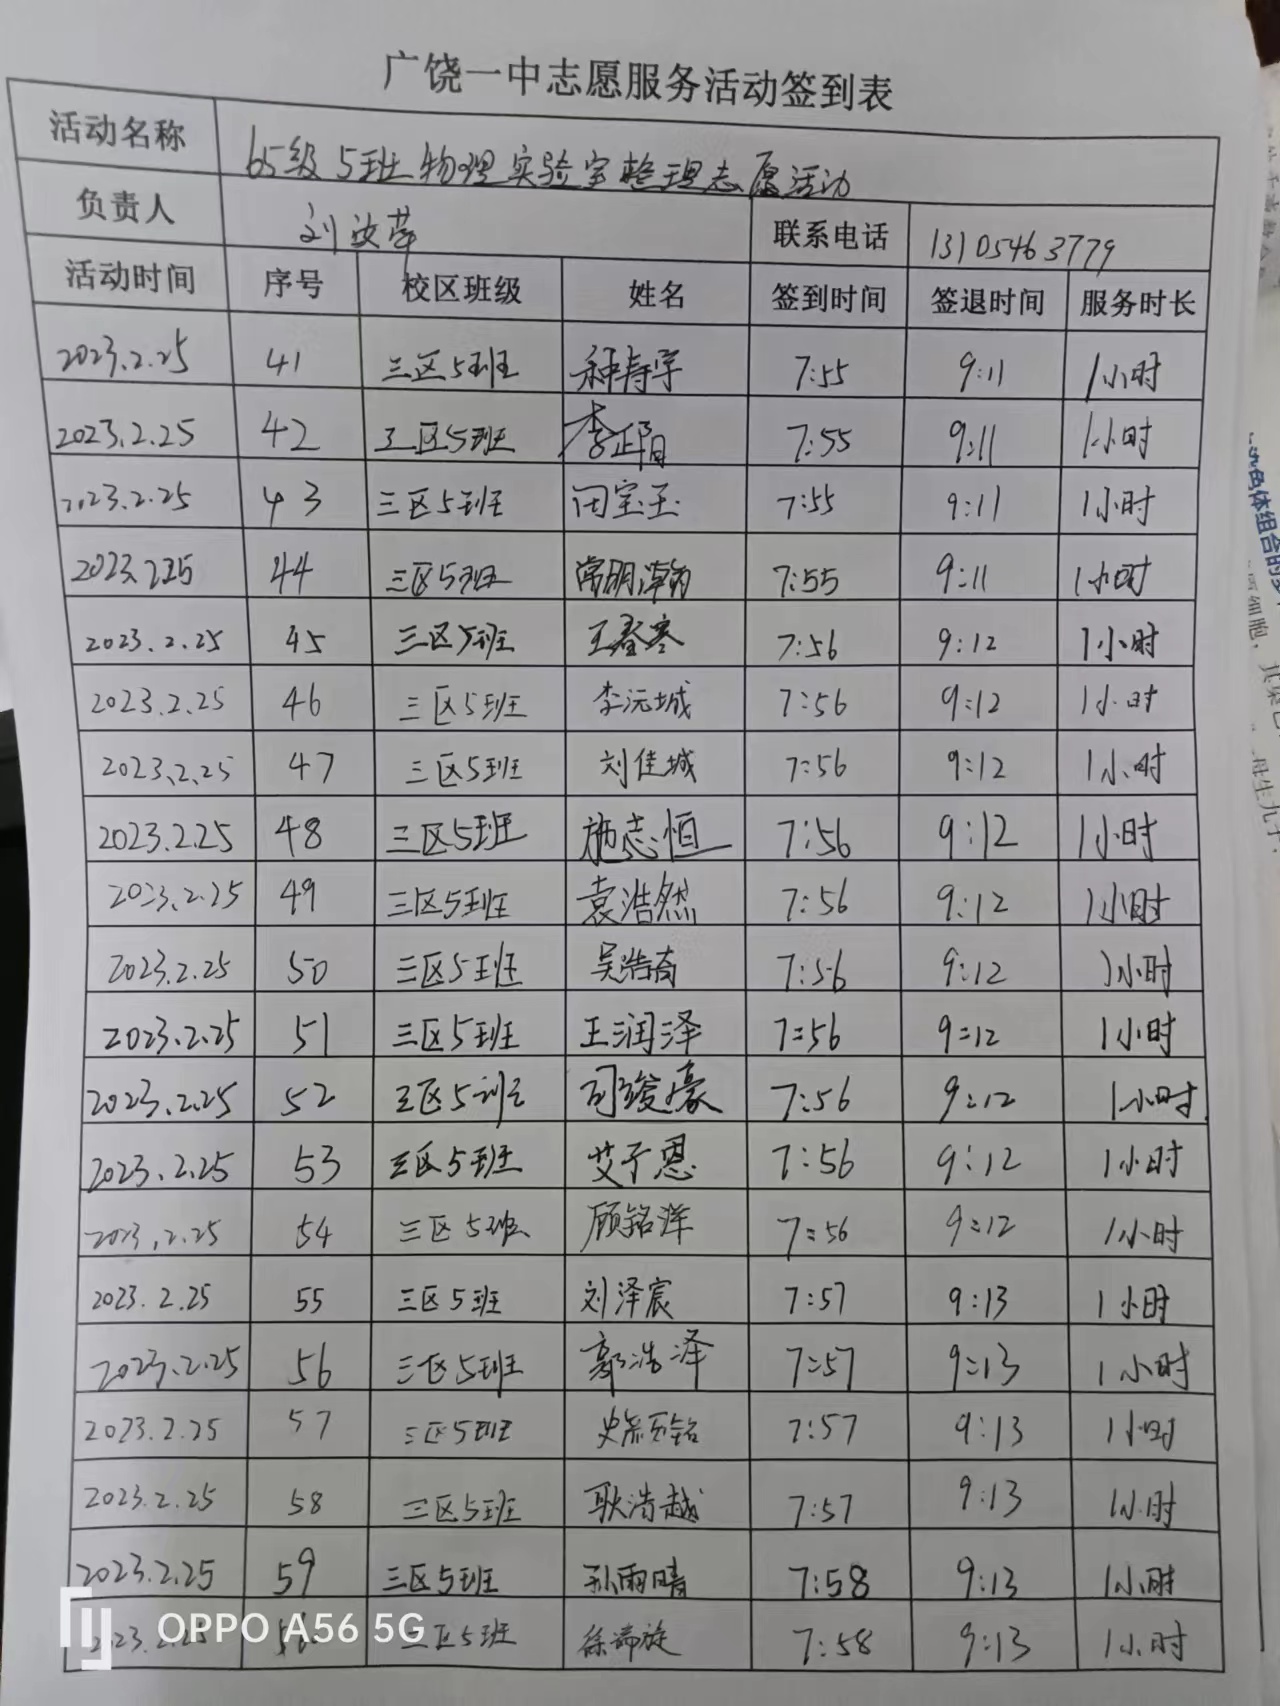 广饶一中志愿服务活动签到表
活动名称 65级5班物理实验室整理志愿活动
负责人 刘 联系电话 13105463779
活动时间 序号 校区班级 姓名 签到时间 签退时间 服务时长
2023.2.25 41 三区5班 7:55 9:11 1小时
2023.2.25 42 三区5班 李正阳 7:55 9:11 1小时
2023.2.25 43 三区5班 闫宝玉 7:55 9:11 1小时
2023.2.25 44 三区5班 常明瀚 7:55 9:11 1小时
2023.2.25 45 三区5班 王春寒 7:56 9:12 1小时
2023.2.25 46 三区5班 李沅城 7:56 9:12 1小时
2023.2.25 47 三区5班 刘佳城 7:56 9:12 1小时
2023.2.25 48 三区5班 施志恒 7:56 9:12 1小时
2023.2.25 49 三区5班 袁浩然 7:56 9:12 1小时
2023.2.25 50 三区5班 吴浩奇 7:56 9:12 1小时
2023.2.25 51 三区5班 王润泽 7:56 9:12 1小时
2023.2.25 52 三区5班 司竣豪 7:56 9:12 1小时
2023.2.25 53 三区5班 艾予恩 7:56 9:12 1小时
2023.2.25 54 三区5班 顾铭洋 7:56 9:12 1小时
2023.2.25 55 三区5班 刘泽宸 7:57 9:13 1小时
2023.2.25 56 三区5班 郭浩泽 7:57 9:13 1小时
2023.2.25 57 三区5班 7:57 9:13 1小时
2023.2.25 58 三区5班 耿浩越 7:57 9:13 1小时
2023.2.25 59 三区5班 孙雨晴 7:58 9:13 1小时
2023.2.25 三区5班 7:58 9:13 1小时
OPPO A56 5G